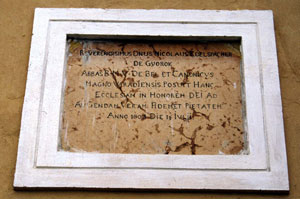 REVERENDISIMUS DNUS NICOLAUS
DE GYOROK
ABBAS B.M.V. DE BEL ET CANONICUS
MAGNO VARADIENSIS POSUIT HANC
ECCLESIAM IN HONOREM DEI AD
AUGENDAM VERAM FIDEM ET PIETATEM
ANNO DIE